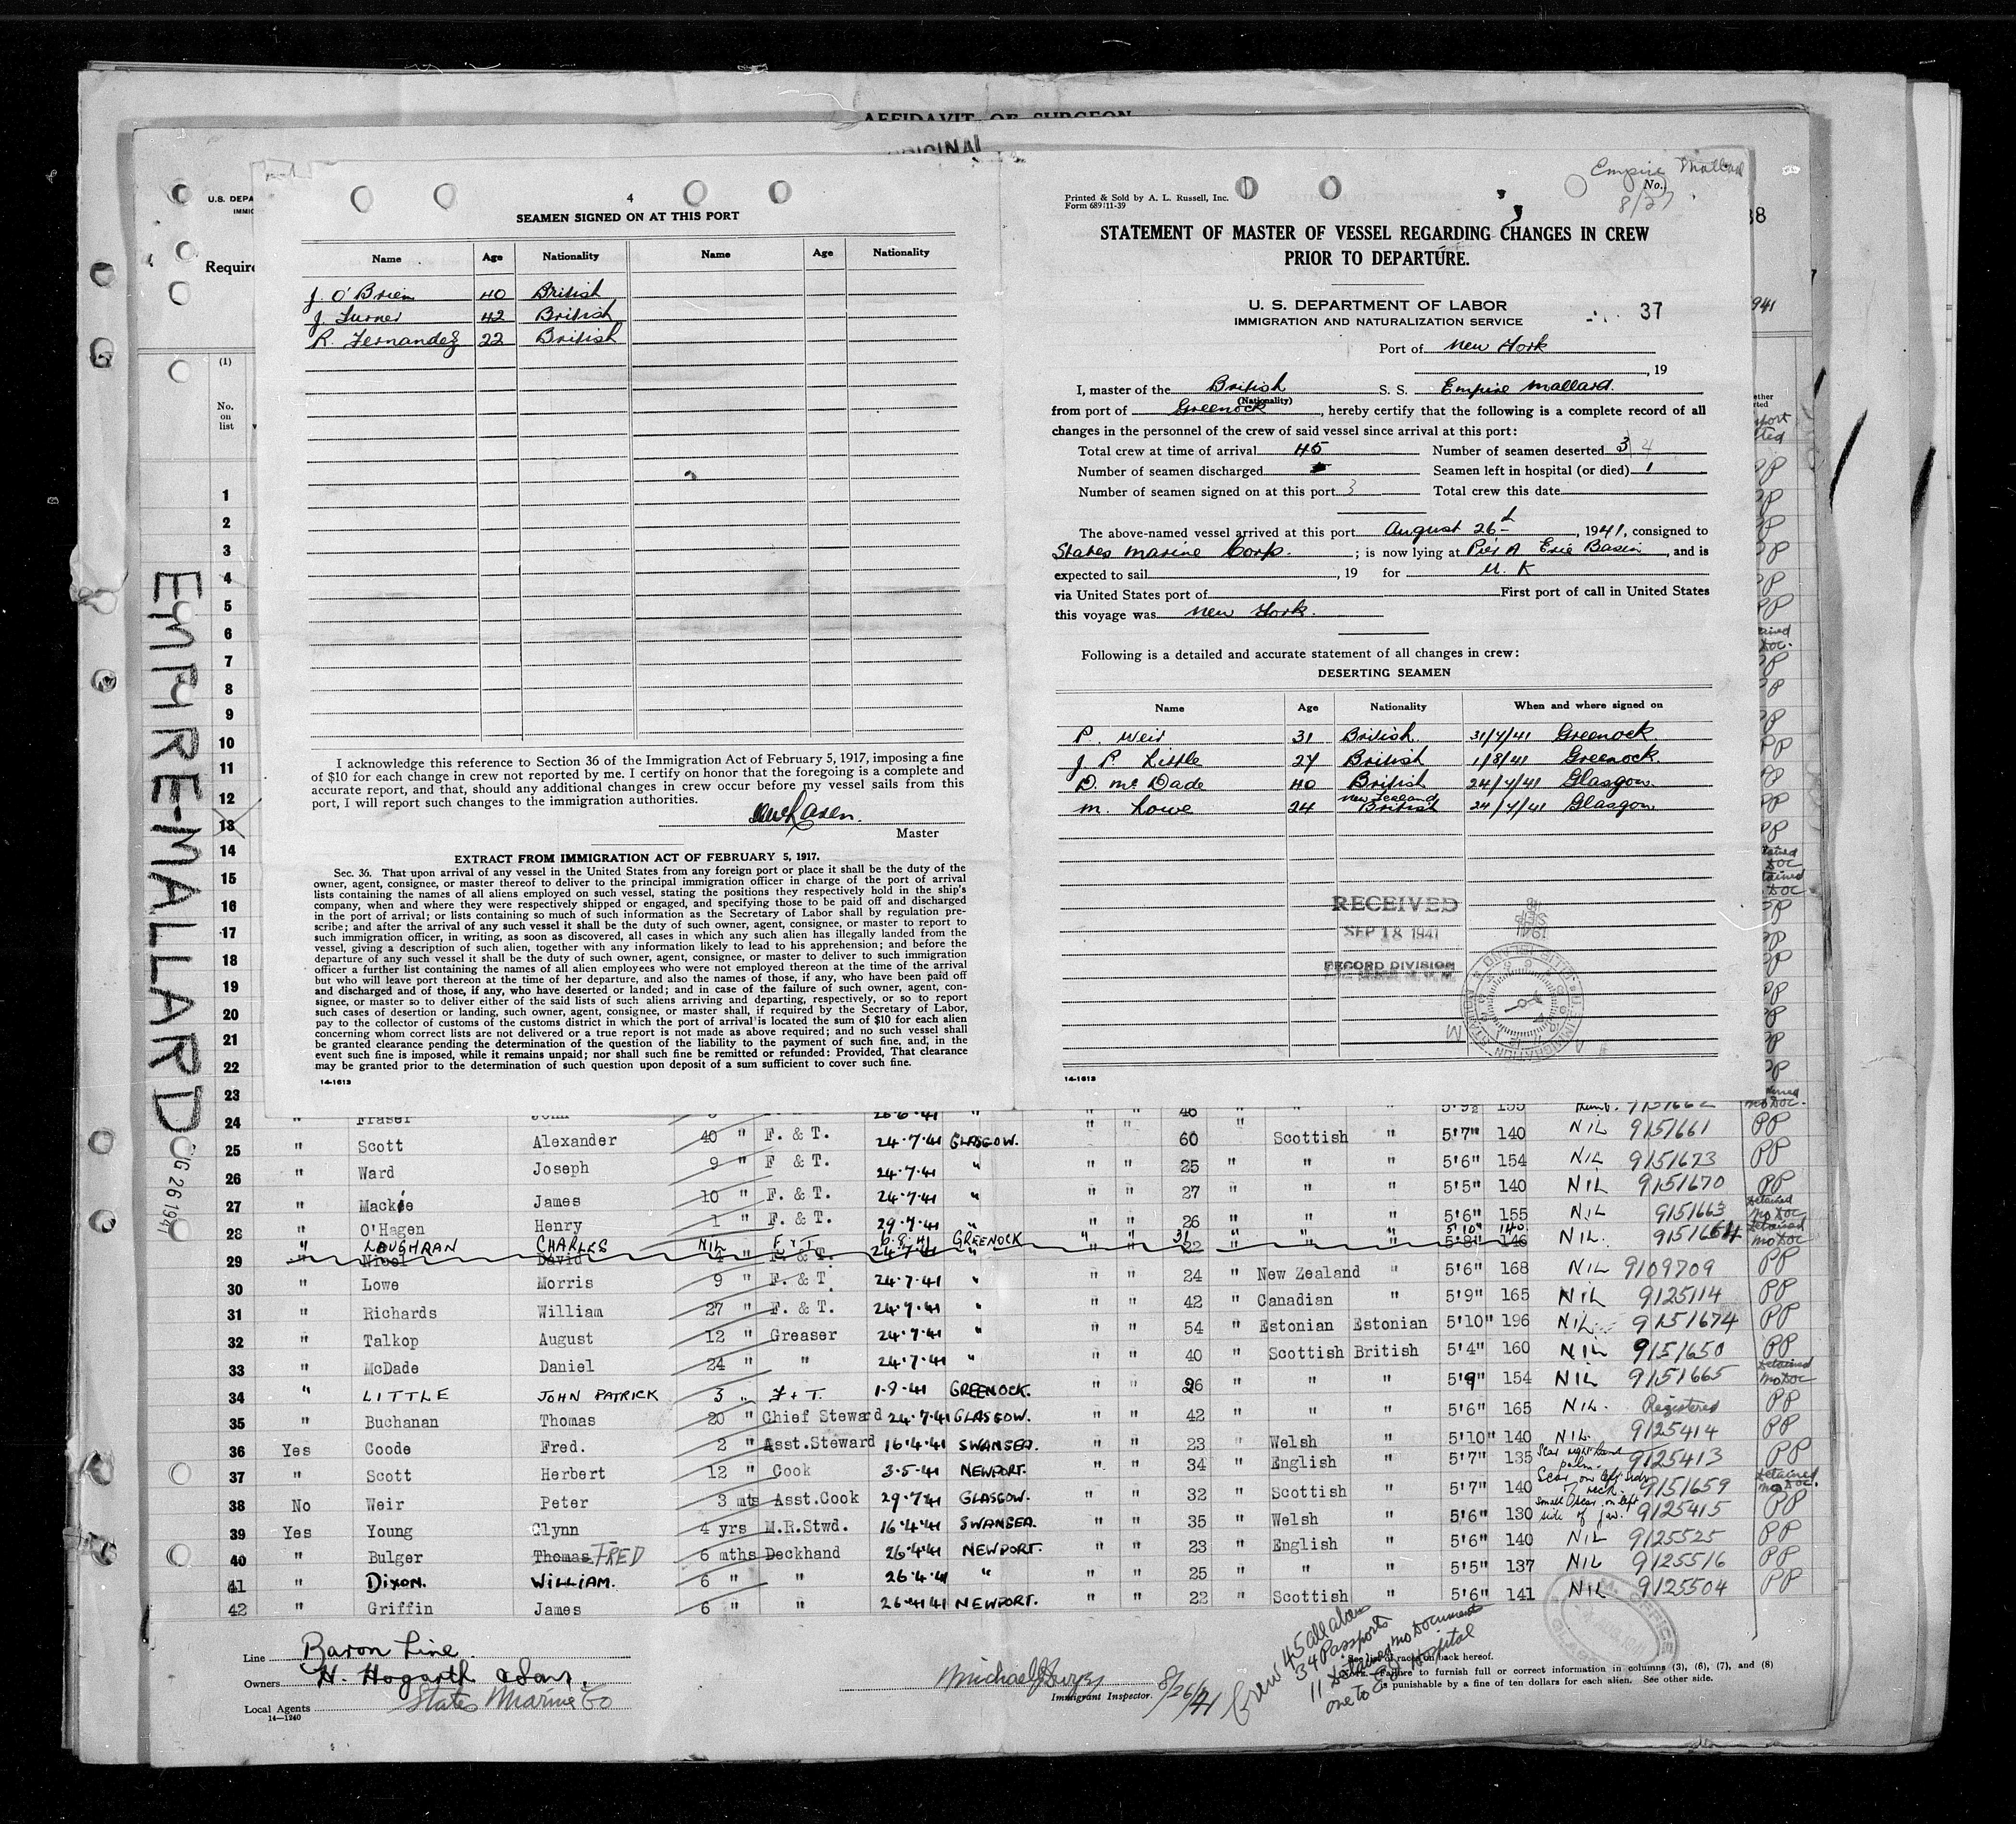 AFFIDAVIT OF SURGEON
ORIGINAL
4
SEAMEN SIGNED ON AT THIS PORT
Name Age Nationality Name Age Nationality
J. O'Brien 40 British
J. Turner 42 British
R. Fernandez 22 British
I acknowledge this reference to Section 36 of the Immigration Act of February 5, 1917, imposing a fine
of $10 for each change in crew not reported by me. I certify on honor that the foregoing is a complete and
accurate report, and that, should any additional changes in crew occur before my vessel sails from this
port, I will report such changes to the immigration authorities.
Master
EXTRACT FROM IMMIGRATION ACT OF FEBRUARY 5, 1917.
Sec. 36. That upon arrival of any vessel in the United States from any foreign port or place it shall be the duty of the
owner, agent, consignee, or master thereof to deliver to the principal immigration officer in charge of the port of arrival
lists containing the names of all aliens employed on such vessel, stating the positions they respectively hold in the ship's
company, when and where they were respectively shipped or engaged, and specifying those to be paid off and discharged
in the port of arrival; or lists containing so much of such information as the Secretary of Labor shall by regulation pre-
scribe; and after the arrival of any such vessel it shall be the duty of such owner, agent, consignee, or master to report to
such immigration officer, in writing, as soon as discovered, all cases in which any such alien has illegally landed from the
vessel, giving a description of such alien, together with any information likely to lead to his apprehension; and before the
departure of any such vessel it shall be the duty of such owner, agent, consignee, or master to deliver to such immigration
officer a further list containing the names of all alien employees who were not employed thereon at the time of the arrival
but who will leave port thereon at the time of her departure, and also the names of those, if any, who have been paid off
and discharged and of those, if any, who have deserted or landed; and in case of the failure of such owner, agent, con-
signee, or master so to deliver either of the said lists of such aliens arriving and departing, respectively, or so to report
such cases of desertion or landing, such owner, agent, consignee, or master shall, if required by the Secretary of Labor,
pay to the collector of customs of the customs district in which the port of arrival is located the sum of $10 for each alien
concerning whom correct lists are not delivered or a true report is not made as above required; and no such vessel shall
be granted clearance pending the determination of the question of the liability to the payment of such fine, and, in the
event such fine is imposed, while it remains unpaid; nor shall such fine be remitted or refunded: Provided, That clearance
may be granted prior to the determination of such question upon deposit of a sum sufficient to cover such fine.
14-1613
Empire Mallard
Printed & Sold by A. L. Russell, Inc.
Form 689 11-39
No.
8/27
STATEMENT OF MASTER OF VESSEL REGARDING CHANGES IN CREW
PRIOR TO DEPARTURE.
U. S. DEPARTMENT OF LABOR
IMMIGRATION AND NATURALIZATION SERVICE
37
Port of New York
, 19
I, master of the British S. S. Empire Mallard.
(Nationality)
from port of Greenock, hereby certify that the following is a complete record of all
changes in the personnel of the crew of said vessel since arrival at this port:
Total crew at time of arrival 45 Number of seamen deserted 3 4
Number of seamen discharged Seamen left in hospital (or died) 1
Number of seamen signed on at this port 3 Total crew this date
The above-named vessel arrived at this port August 26th, 1941, consigned to
States Marine Corp. ; is now lying at Pier A Erie Basin, and is
expected to sail , 19 for U. K
via United States port of First port of call in United States
this voyage was New York.
Following is a detailed and accurate statement of all changes in crew:
DESERTING SEAMEN
Name Age Nationality When and where signed on
P. Weir 31 British 31/7/41 Greenock
J P Little 27 British 1/8/41 Greenock
D. McDade 40 British 24/7/41 Glasgow
M. Lowe 24 New Zealand British 24/7/41 Glasgow
RECEIVED
SEP 18 1941
RECORD DIVISION
14-1613
U.S. DEPA
IMMIG
Require
(1)
No.
on
list
1
2
3
4
5
6
7
8
9
10
11
12
13
14
15
16
17
18
19
20
21
22
23
EMPIRE-MALLARD
G 26 1941
24 " Fraser John 26.6.41 " " " 46 " " " 5'9½ 155
25 " Scott Alexander 40 " F. & T. 24.7.41 GLASGOW. " " 60 Scottish " 5'7" 140 NIL 9151661 PP
26 " Ward Joseph 9 " F & T. 24.7.41 " " " 25 " " " 5'6" 154 NIL 9151673 PP
27 " Mackie James 10 " F. & T. 24.7.41 " " " 27 " " " 5'5" 140 NIL 9151670 PP
28 " O'Hagen Henry 1 " F. & T. 29.7.41 " " " 26 " " " 5'6" 155 NIL 9151663 Detained no Doc
" LOUGHRAN CHARLES NIL F & T 6.8.41 GREENOCK " " 31 " " " 5'10" 140 NIL. 9151664 Detained no Doc
29 " Nicol David 4 " F. & T. 24.7.41 " " " 22 " " " 5'8" 146
30 " Lowe Morris 9 " F. & T 24.7.41 " " " 24 " New Zealand " 5'6" 168 NIL 9109709 PP
31 " Richards William 27 " F. & T. 24.7.41 " " " 42 " Canadian " 5'9" 165 NIL 9125114 PP
32 " Talkop August 12 " Greaser 24.7.41 " " " 54 " Estonian Estonian 5'10" 196 NIL 9151674 PP
33 " McDade Daniel 24 " " 24.7.41 " " " 40 " Scottish British 5'4" 160 NIL 9151650 PP
34 " LITTLE JOHN PATRICK 3 " F & T. 1.8.41 GREENOCK. " " 26 " " " 5'9" 154 NIL 9151665 Detained no Doc
35 " Buchanan Thomas 20 " Chief Steward 24.7.41 GLASGOW. " " 42 " " " 5'6" 165 NIL. Registered PP
36 Yes Coode Fred. 2 " Asst.Steward 16.4.41 SWANSEA. " " 23 " Welsh " 5'10" 140 NIL. 9125414 PP
37 " Scott Herbert 12 " Cook 3.5.41 NEWPORT. " " 34 " English " 5'7" 135 Scar right hand palm. 9125413 PP
38 No Weir Peter 3 mts Asst.Cook 29.7.41 GLASGOW. " " 32 " Scottish " 5'7" 140 Scar on left side of neck. 9151659 Detained no Doc.
39 Yes Young Glynn 4 yrs M.R.Stwd. 16.4.41 SWANSEA. " " 35 " Welsh " 5'6" 130 Small scar on left side of jaw. 9125415 PP
40 " Bulger Thomas FRED 6 mths Deckhand 26.4.41 NEWPORT. " " 23 " English " 5'6" 140 NIL 9125525 PP
41 " DIXON. WILLIAM. 6 " " 26.4.41 " " " 25 " " " 5'5" 137 NIL 9125516 PP
42 " Griffin James 6 " " 26.4.41 NEWPORT. " " 22 " Scottish " 5'6" 141 NIL 9125504 PP
Line Baron Line
Owners H. Hogarth & Sons.
Local Agents States Marine Co
14-1240
Immigrant Inspector. 8/26/41
Crew 45 all alien
34 Passports
11 Detained no Documents
one to Hospital
back hereof.
Failure to furnish full or correct information in columns (3), (6), (7), and (8)
is punishable by a fine of ten dollars for each alien. See other side.